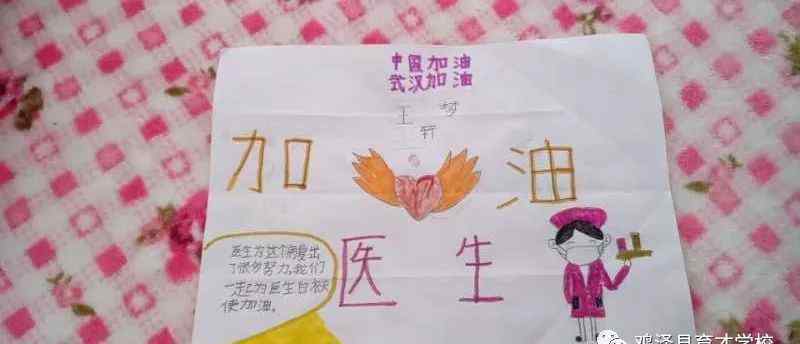 中国加油
武汉加油
王 梦
轩
加 油
医 生
医生为这个病复出
了很多努力,我们
一起为医生白衣天
使加油。
鸡泽县育才学校